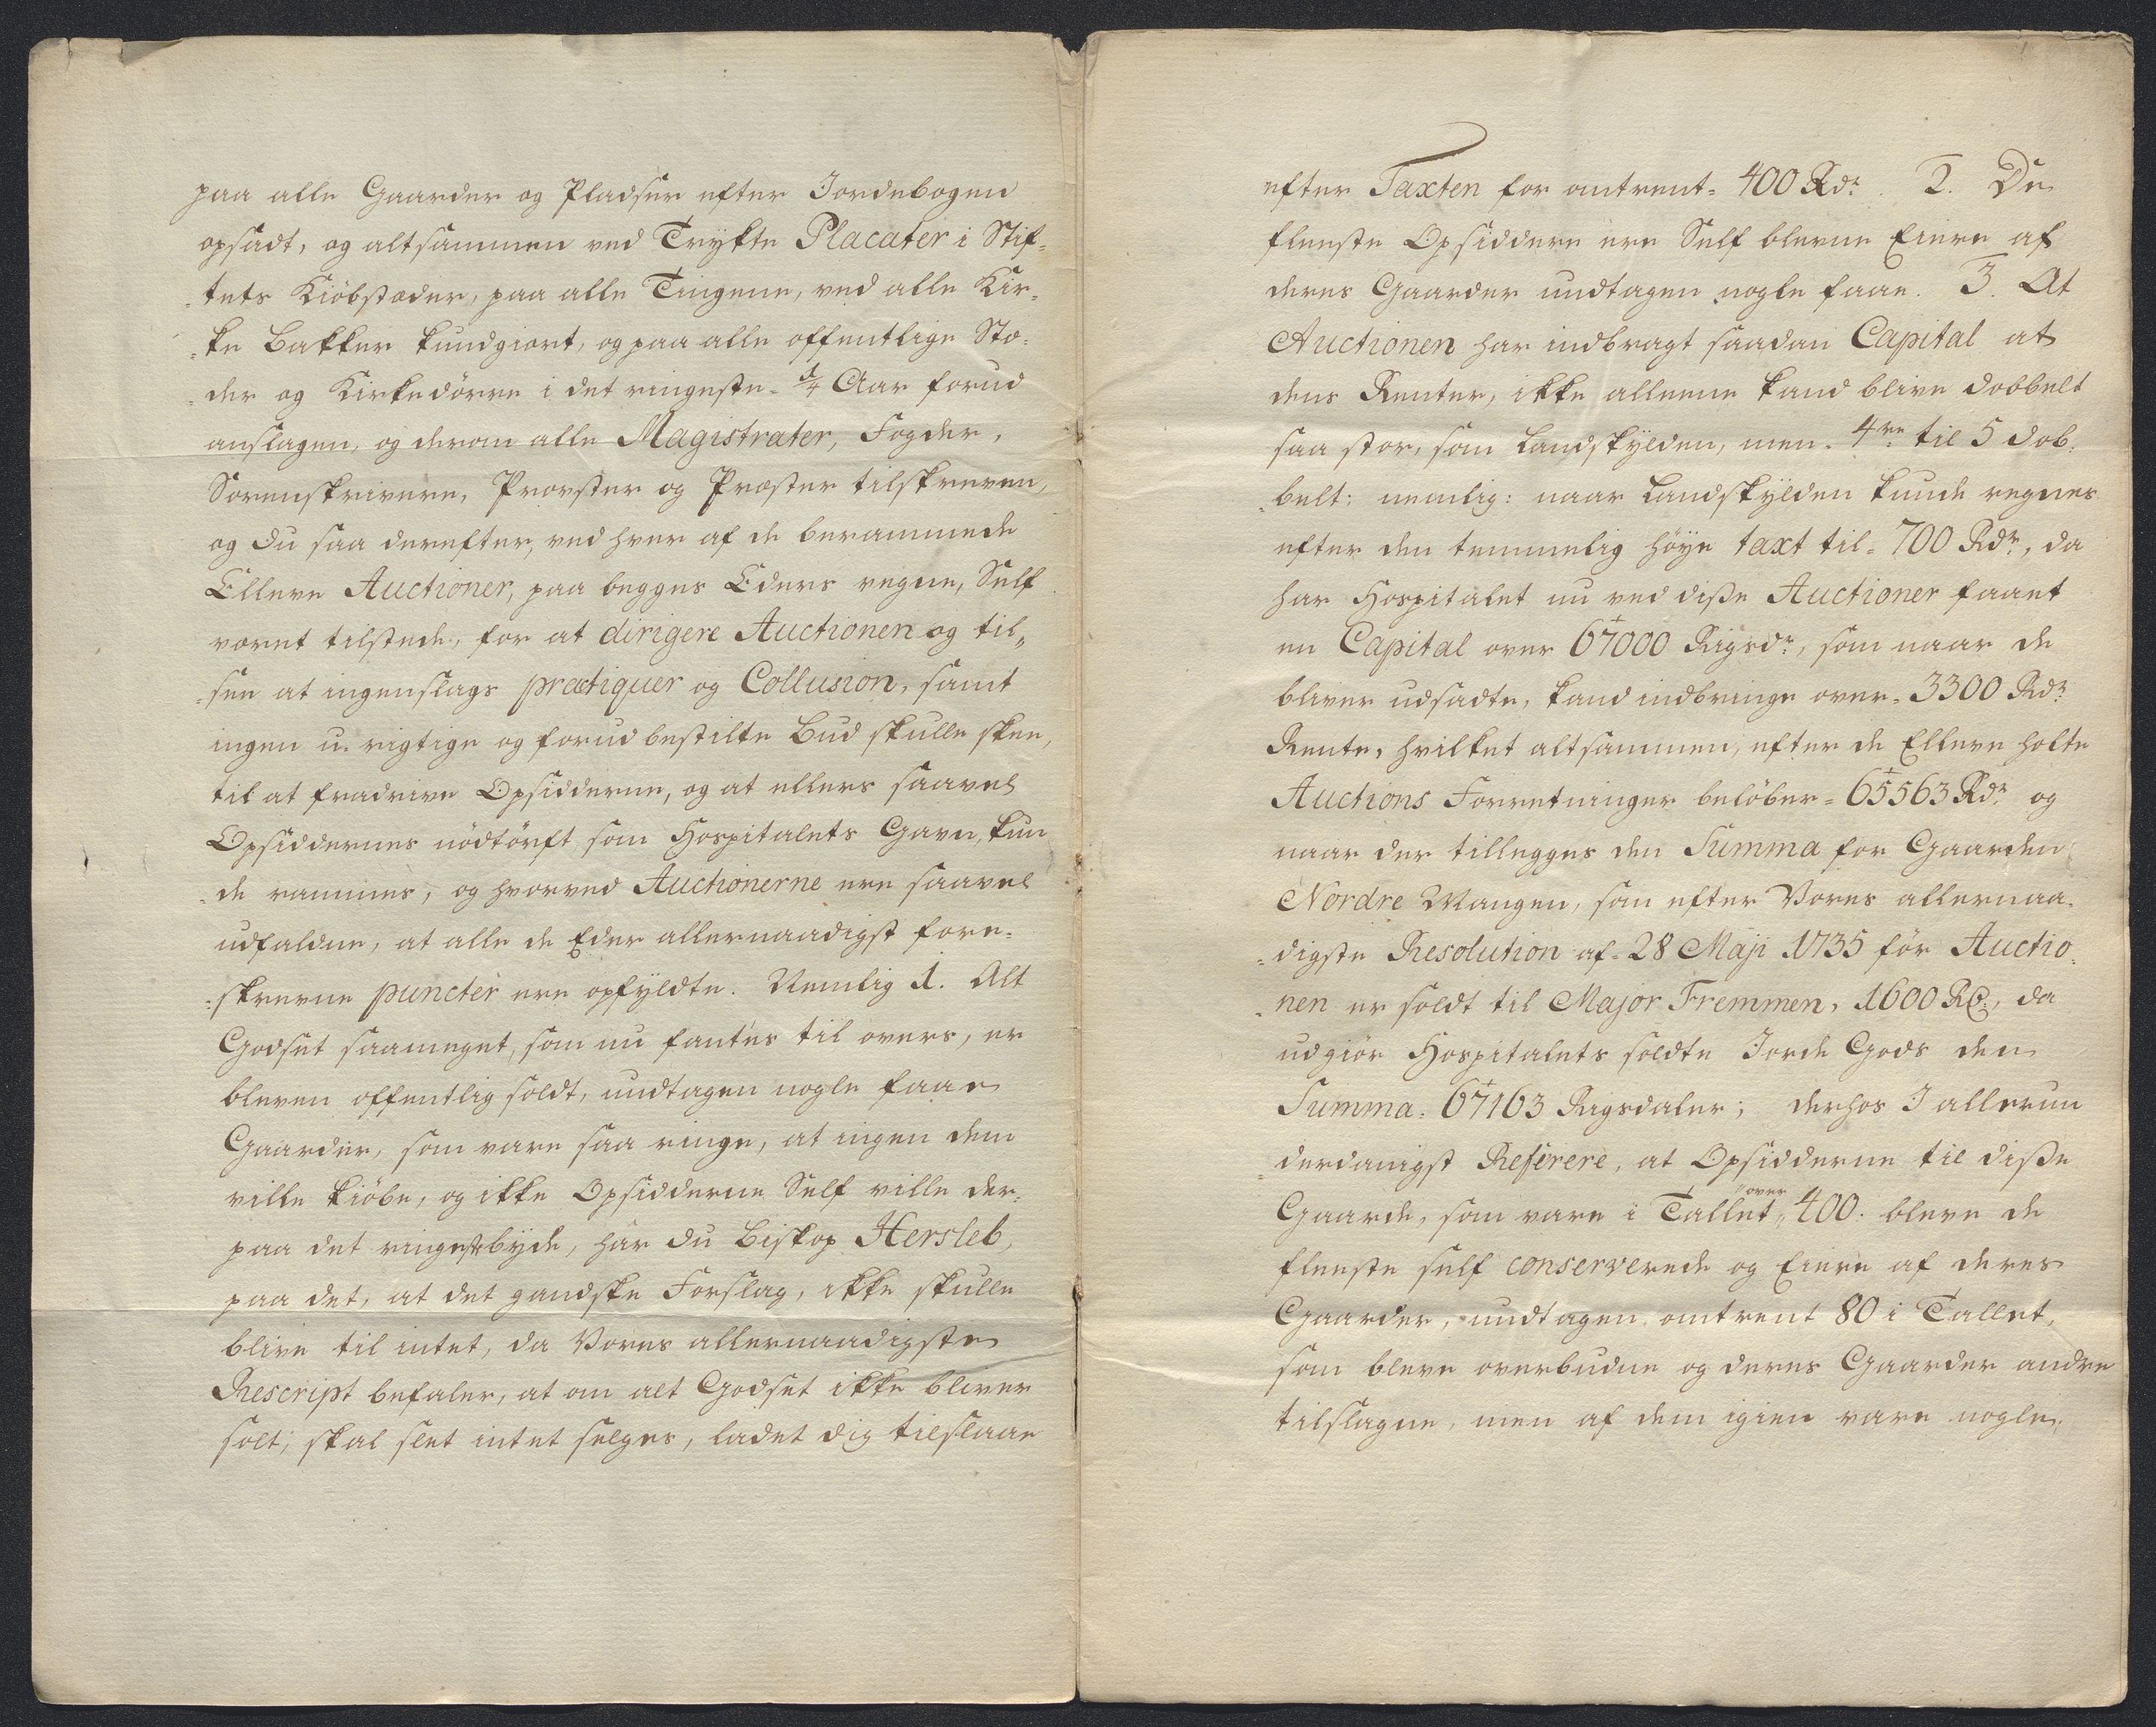 paa alle Gaarder og Pladser efter Jordebogen
opsadt, og altsammen ved Trykte Placater i Stif-
-tets Kiöbstæder, paa alle Tingene, ved alle Kir-
-ke Bakker kundgiort, og paa alle offentlige Stæ-
-der og Kirkedörre i det ringeste - 1/4 Aar forud
anslagen, og derom alle Magistrater, Fogder,
Sorenskrivere, Provster og Præster tilskreven,
og du saa derefter, ved hver af de berammede
Elleve Auctioner, paa begges Eders vegne, Self
været tilstede, for at dirigere Auctionen og til-
-see at ingenslags practiquer og Collusion, samt
ingen u-rigtige og forud bestilte Bud skulle skee,
til at fradrive Opsidderne, og at ellers saavel
Opsiddernes nödtörft, som Hospitalets Gavn, kun
-de rammes, og hvorved Auctionerne ere saavel
udfaldne, at alle de Eder allernaadigst fore-
-skrevne puncter ere opfyldte. Nemlig 1. Alt
Godset saameget, som nu fantes til overs, er
bleven offentlig soldt, undtagen nogle faae
Gaarder, som vare saa ringe, at ingen dem
ville kiöbe, og ikke Opsidderne Self ville der-
paa det ringeste byde, har du Biskop Hersleb,
paa det, at det gandske Forslag, ikke skulle
blive til intet, da Vores allernaadigste
Rescript befaler, at om alt Godset ikke bliver
solt, skal slet intet selges, ladet dig tilslaae
efter Taxten for omtrent - 400 Rdr. 2. De
fleeste Opsiddere ere Self blevne Eiere af
deres Gaarder undtagen nogle faae. 3. At
Auctionen har indbragt saadan Capital at
dens Renter, ikke alleene kand blive dobbelt
saa stor, som Landskylden, men - 4re til 5 dob-
-belt: nemlig: naar Landskylden kunde regnes
efter den temmelig höye taxt til - 700 Rdr, da
har Hospitalet nu ved diße Auctioner faaet
en Capital over 67000 Rigsdr, som naar de
bliver udsadte, kand indbringe over - 3300 Rdr
Rente, hvilket altsammen, efter de Elleve holte
Auctions Forretninger belöber - 65563 Rdr og
naar der tillegges den Summa for Gaarden
Nordre Mangen, som efter Vores allernaa-
-digste Resolution af - 28 Maji 1735 för Auctio-
-nen er soldt til Major Fremmen, 1600 Rd, da
udgiör Hospitalets soldte Jorde Gods den
Summa - 67163 Rigsdaler; derhos I allerun
-derdanigst Referere, at Opsidderne til diße
Gaarde, som vare i Tallet over 400. bleve de
fleeste self conserverede og Eiere af deres
Gaarder, undtagen omtrent 80 i Tallet,
som bleve overbudne og deres Gaarder andre
tilslagne, men af dem igien vare nogle